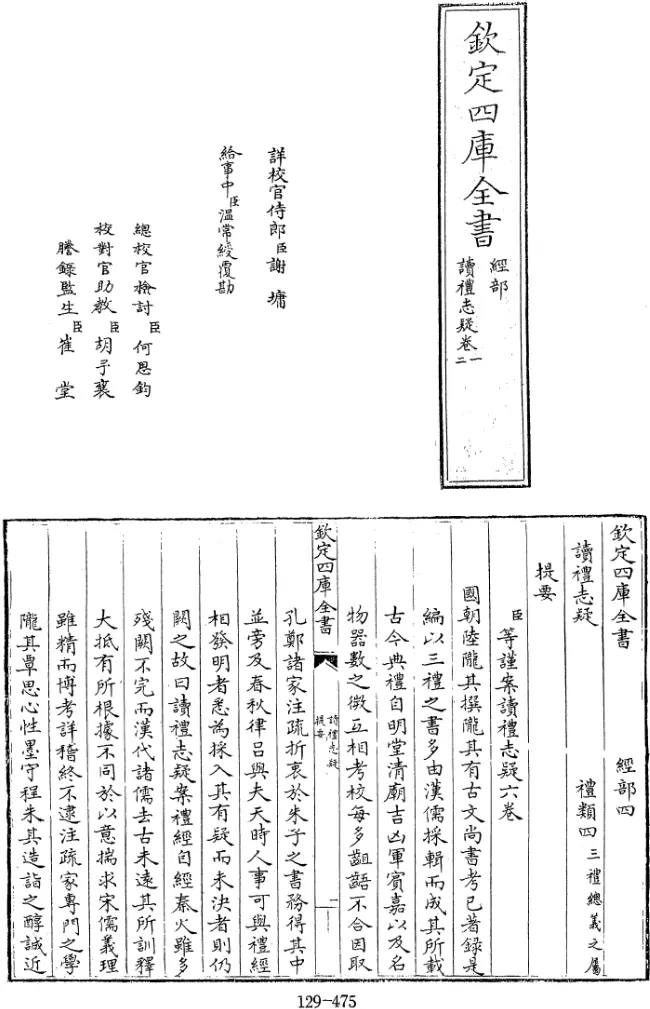 欽定四庫全書
經部
讀禮志疑卷一
二
詳校官侍郎臣謝墉
給事中臣溫常綬覆勘
總校官檢討臣何思鈞
校對官助教臣胡予襄
謄錄監生臣崔堂
欽定四庫全書 經部四
讀禮志疑 禮類四三禮總義之屬
提要
臣等謹案讀禮志疑六卷
國朝陸隴其撰隴其有古文尚書考已著錄是
編以三禮之書多由漢儒採輯而成其所載
古今典禮自明堂清廟吉凶軍賓嘉以及名
物器數之微互相考校每多齟齬不合因取
欽定四庫全書
讀禮志疑
提要
一
孔鄭諸家注疏折衷於朱子之書務得其中
並旁及春秋律呂與夫天時人事可與禮經
相發明者悉為採入其有疑而未決者則仍
闕之故曰讀禮志疑案禮經自經秦火雖多
殘闕不完而漢代諸儒去古未遠其所訓釋
大抵有所根據不同於以意揣求宋儒義理
雖精而博考詳稽終不逮注疏家專門之學
隴其覃思心性墨守程朱其造詣之醇誠近
129-475